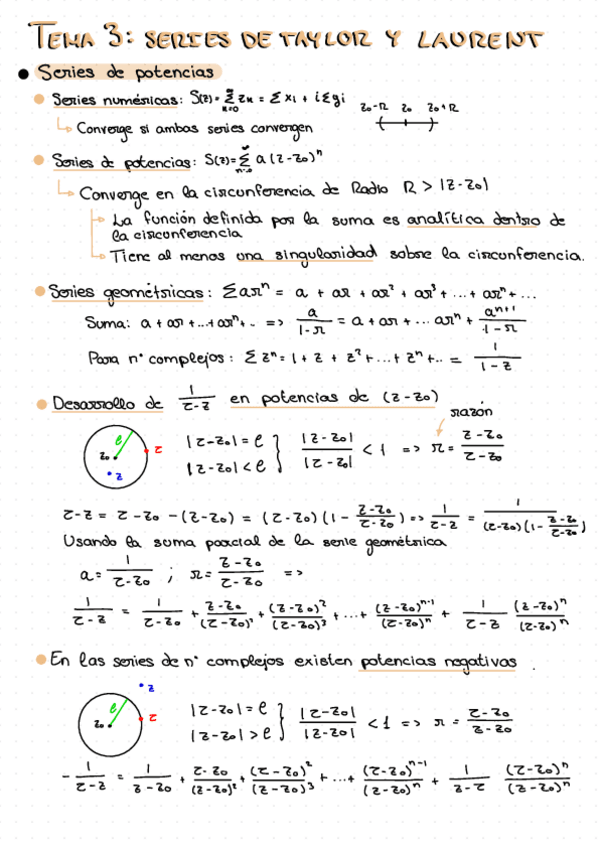 TEMA 3: SERIES DE TAYLOR Y LAURENT
Series de potencias
Series numéricas: S(z) = ∑_{n=0}^{∞} zn = ∑ xi + i∑yi
z₀-R z₀ z₀+R
Converge si ambas series convergen
Series de potencias: S(z) = ∑_{n=0}^{∞} a(z-z₀)ⁿ
Converge en la circunferencia de Radio R > |z-z₀|
La función definida por la suma es analítica dentro de
la circunferencia
Tiene al menos una singularidad sobre la circunferencia.
Series geométricas: ∑arⁿ = a + ar + ar² + ar³ + ... + arⁿ + ...
Suma: a + ar + ... + arⁿ + .. => a/(1-r) = a + ar + ... arⁿ + aⁿ⁺¹/(1-r)
Para nº complejos: ∑zⁿ = 1 + z + z² + ... + zⁿ + .. = 1/(1-z)
Desarrollo de 1/(τ-z) en potencias de (z-z₀)
razón
ρ τ z₀ z
|τ-z₀| = ρ
|z-z₀| < ρ } |z-z₀|/|τ-z₀| < 1 => r = (z-z₀)/(τ-z₀)
τ-z = τ-z₀-(z-z₀) = (τ-z₀)(1 - (z-z₀)/(τ-z₀)) => 1/(τ-z) = 1/((τ-z₀)(1 - (z-z₀)/(τ-z₀)))
Usando la suma parcial de la serie geométrica
a = 1/(τ-z₀) ; r = (z-z₀)/(τ-z₀) =>
1/(τ-z) = 1/(τ-z₀) + (z-z₀)/(τ-z₀)² + (z-z₀)²/(τ-z₀)³ + ... + (z-z₀)ⁿ⁻¹/(τ-z₀)ⁿ + 1/(τ-z) (z-z₀)ⁿ/(τ-z₀)ⁿ
En las series de nº complejos existen potencias negativas .
z ρ τ z₀
|τ-z₀| = ρ
|z-z₀| > ρ } |τ-z₀|/|z-z₀| < 1 => r = (τ-z₀)/(z-z₀)
- 1/(τ-z) = 1/(z-z₀) + (τ-z₀)/(z-z₀)² + (τ-z₀)²/(z-z₀)³ + ... + (τ-z₀)ⁿ⁻¹/(z-z₀)ⁿ + 1/(z-τ) (τ-z₀)ⁿ/(z-z₀)ⁿ